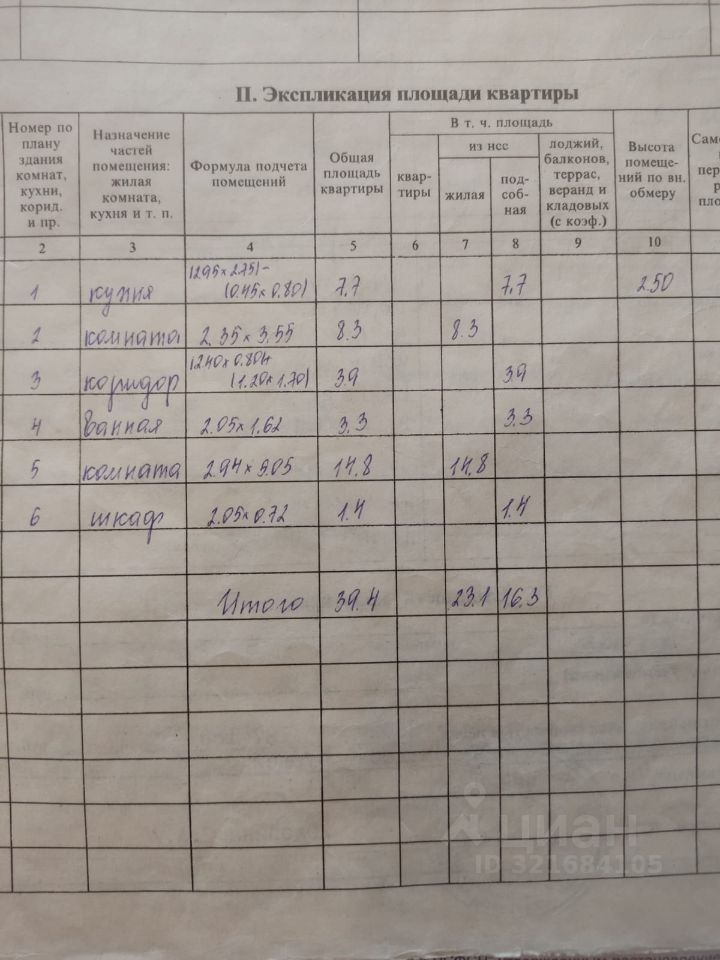 II. Экспликация площади квартиры
Номер по плану здания комнат, кухни, корид. и пр.
Назначение частей помещения: жилая комната, кухня и т. п.
Формула подчета помещений
Общая площадь квартиры
В т. ч. площадь
квар-тиры
из нсс
жилая
под-соб-ная
лоджий, балконов, террас, веранд и кладовых (с коэф.)
Высота помеще-ний по вн. обмеру
2 3 4 5 6 7 8 9 10
1 кухня (2.95×2.75)- (0.45×0.80) 7,7 7,7 2.50
2 комната 2.35×3.55 8.3 8.3
3 коридор (2.40×0.80)+ (1.20×1.70) 3.9 3.9
4 ванная 2.05×1.62 3.3 3.3
5 комната 2.94×5.05 14.8 14.8
6 шкаф 2.05×0.72 1.4 1.4
Итого 39.4 23.1 16.3
циан
ID 321684105